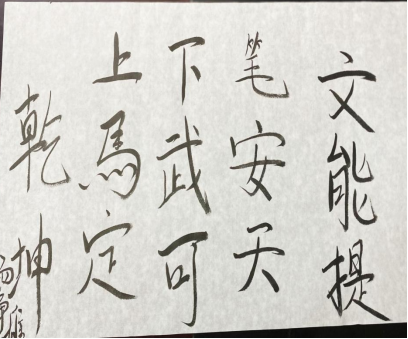 文能提
笔安天
下武可
上馬定
乾坤